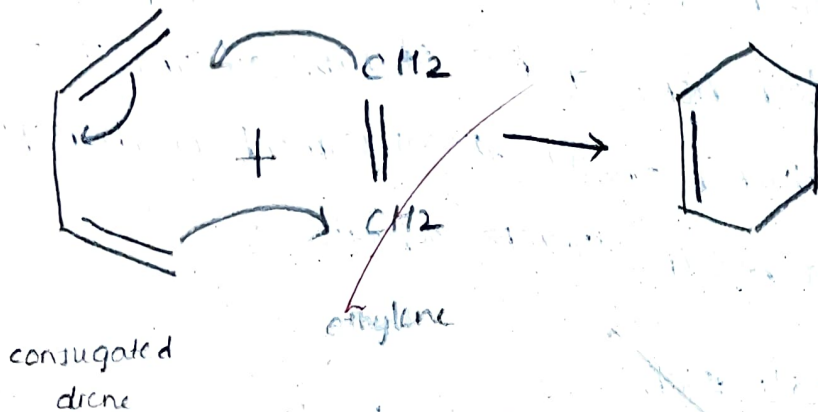 CH2
+
CH2
ethylene
conjugated
diene